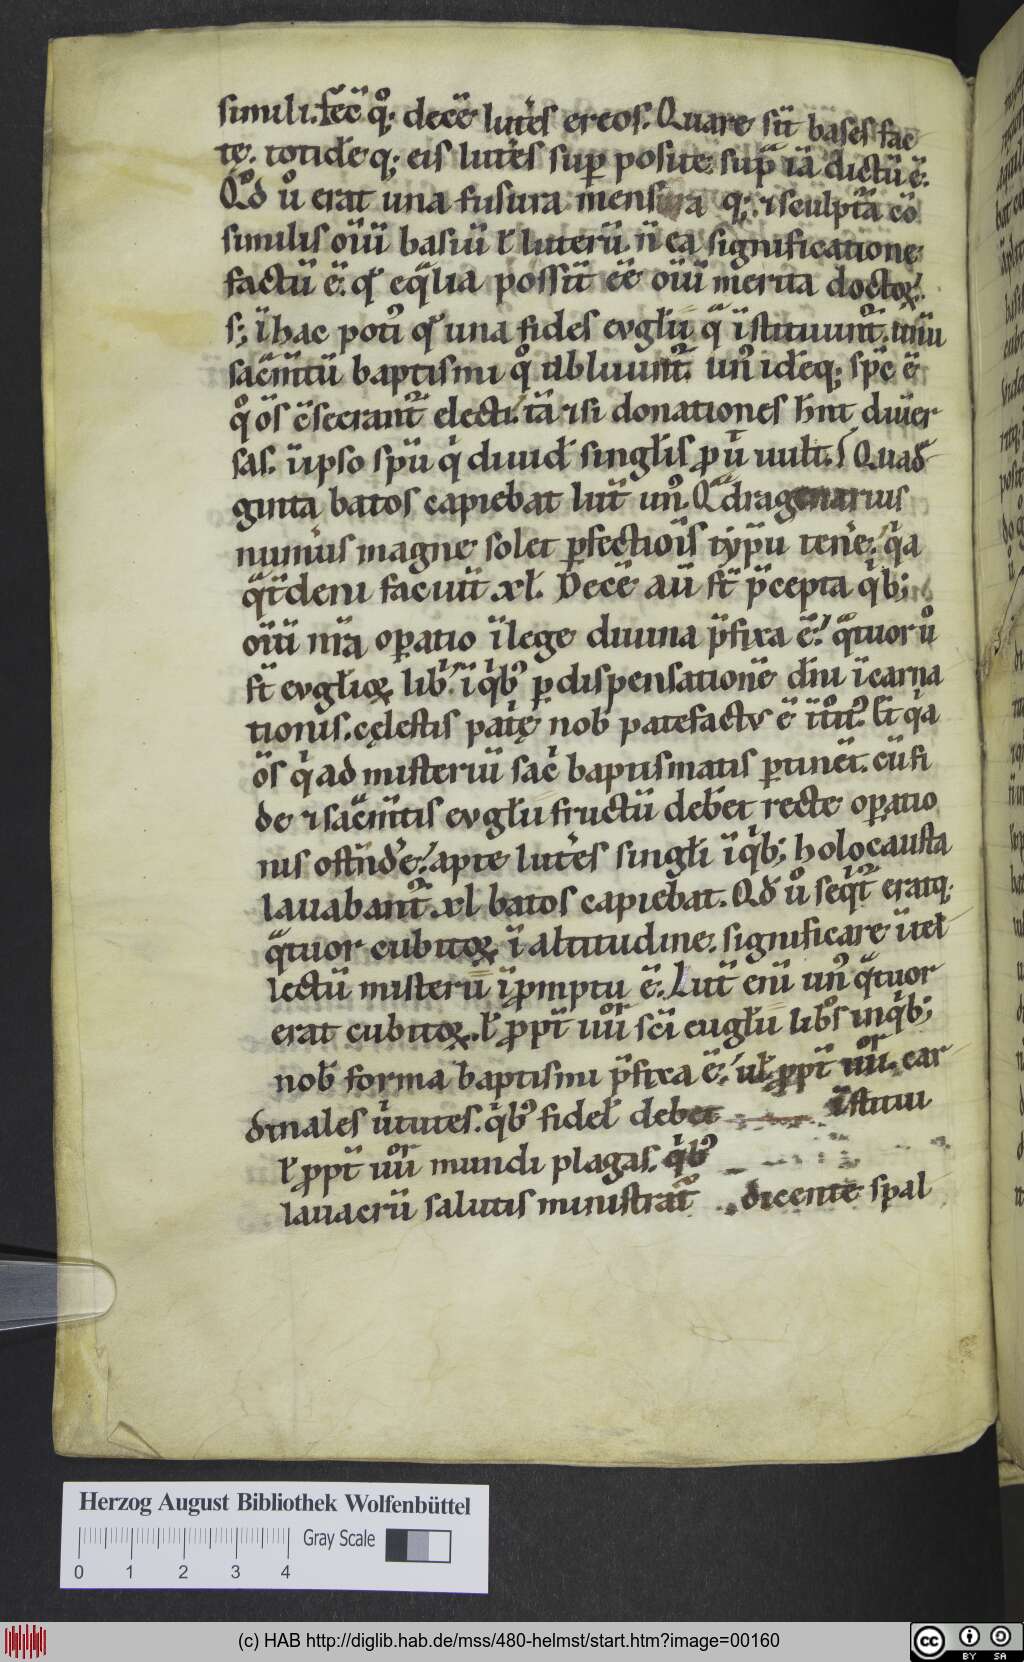 simili. fec̄ qͦq; decē lut'es ereos. Quare st̄ bases fac
tę. totidēq; eis lut'es sup posite. sup̄ iā dictū ē.
Qd̄ ů erat una fusura mensura q; ⁊ sculpt̄a eō
similis oīū basiū ł luterū. n̄ ea significatione
factū ē. qd̄ eq̄lia possīt eē oīū merita doctoꝝ.
s; ī hac poti' qd̄ una fides evgłii q̄ īstituunt᷑. unū
sac̄m̄tū baptismi qͦ abluunt᷑. un' idēq; sp̄c ē
qͦ ōs c̄secrant᷑ electi. tā ⁊ si donationes hn̄t diuer
sas. īipso spū qⁱ diuid' singłis ꝓut uult. Quad
ginta batos capiebat lut̄ un'. Qͣdragenarius
num'us magne solet ꝑfectiōis typ̄u ten'e. qⁱa
qͣt̄ deni faciūt .xl. Decē aū st̄ p̄cepta qⁱb;
oīū nr̄a oꝑatio ī lege diuina p̄fixa ē. qͣtuor ů
st̄ evgłioꝝ libⁱ. ī qⁱb' ꝑ dispensationē dn̄i īcarna
tionis. cęlestis pat'ę nob' patefact' ē ītroit'. Et qⁱa
ōs qⁱ ad misteriū sac' baptismatis ꝑtinēt. cū fi
de ⁊ sac̄m̄tis evgłii fructū debent recte oꝑatio
nis ostn̄d'e. apte lut'es singłi ī qⁱb; holocausta
lavabant᷑ .xl batos capiebat. Qd̄ ů seqⁱt᷑ eratq;
qͣtuor cubitoꝝ ī altitudine. significare ītel
lectū misteriū īꝓmptu ē. Lut̄ eni un' qͣtuor
erat cubitoꝝ. ł ꝓpt̄ iiiioꝛ sc̄i eugłii lib'os inqⁱb;
nob' forma baptismi p̄fixa ē. uł ꝓpt̄ iiiioꝛ. car
dinales ůtutes. qⁱb' fideł debet īstitui
ł ꝓpt̄ iiiioꝛ mundi plagas. qⁱb'
lauacrū salutis ministrat᷑ dicente spal
Herzog August Bibliothek Wolfenbüttel
Gray Scale
0 1 2 3 4
(c) HAB http://diglib.hab.de/mss/480-helmst/start.htm?image=00160
cc BY SA